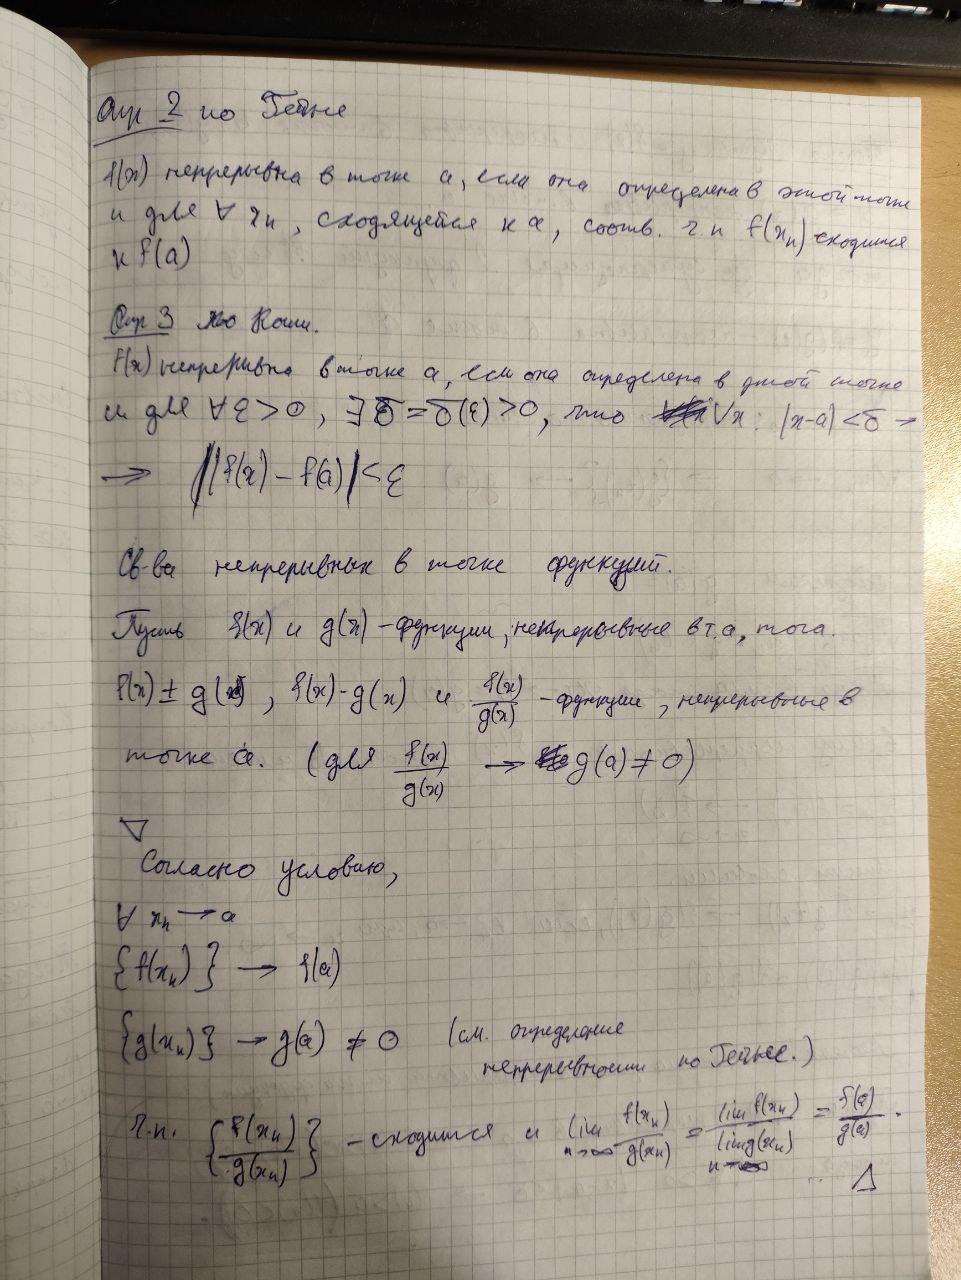 Опр 2 по Гейне
f(x) непрерывна в точке a, если она определена в этой точке
и для ∀ xₙ, сходящейся к a, соотв. ч.п f(xₙ) сходится
к f(a)
Опр 3 по Коши.
f(x) непрерывна в точке a, если она определена в этой точке
и для ∀ε>0, ∃δ=δ(ε)>0, что ∀x: |x-a|<δ →
→ |f(x)-f(a)|<ε
Св-ва непрерывных в точке функций.
Пусть f(x) и g(x) - функции, непрерывные в т.a, тога.
f(x) ± g(x), f(x)·g(x) и f(x)/g(x) - функции, непрерывные в
точке a. (для f(x)/g(x) → g(a) ≠ 0)
▽
Согласно условию,
∀ xₙ → a
{f(xₙ)} → f(a)
{g(xₙ)} → g(a) ≠ 0 (см. определение
непрерывности по Гейне.)
Ч.п. {f(xₙ)/g(xₙ)} - сходится и lim n→∞ f(xₙ)/g(xₙ) = lim f(xₙ)/lim g(xₙ) n→∞ = f(a)/g(a).
Δ